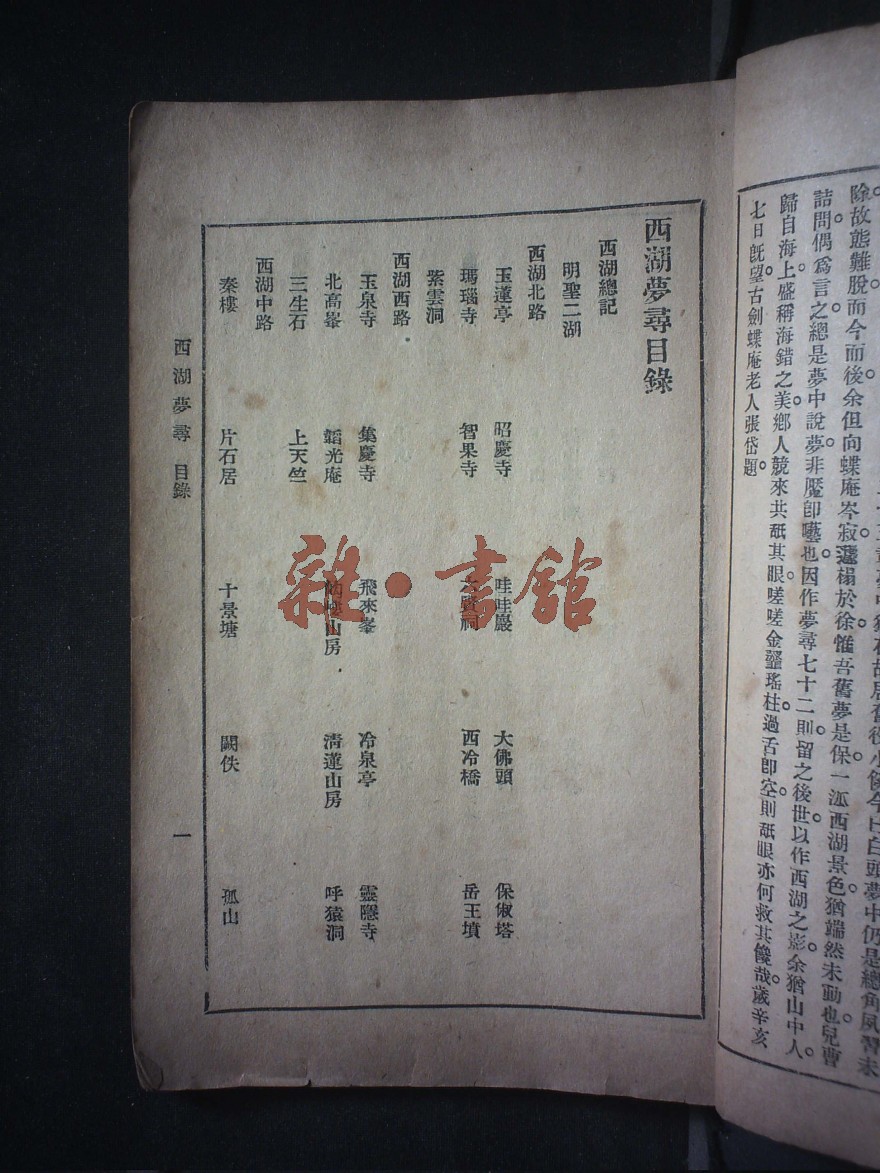 除。故態難脫而今而後余但向蝶庵岑寂蘧榻於徐惟吾舊夢是保一派西湖景色猶端然未動也。兒曹
詰問。偶爲言之。總是夢中說夢。非魘卽囈也。因作夢尋七十二則。留之後世。以作西湖之影。余猶山中人
歸自海上。盛稱海錯之美。鄉人競來共舐其眼。嗟嗟。金虀瑤柱。過舌卽空。則舐眼亦何救其饞哉。歲辛亥
七日旣望。古劍蝶庵老人張岱題。
西湖夢尋目錄
西湖總記
明聖二湖
西湖北路
玉蓮亭 昭慶寺 哇哇巖 大佛頭 保俶塔
瑪瑙寺 智果寺 六賢祠 西冷橋 岳王墳
紫雲洞
西湖西路
玉泉寺 集慶寺 飛來峯 冷泉亭 靈隱寺
北高峯 韜光庵 岣嶁山房 清蓮山房 呼猿洞
三生石 上天竺
西湖中路
秦樓 片石居 十景塘 闕佚 孤山
西湖夢尋 目錄 一
雜·書館